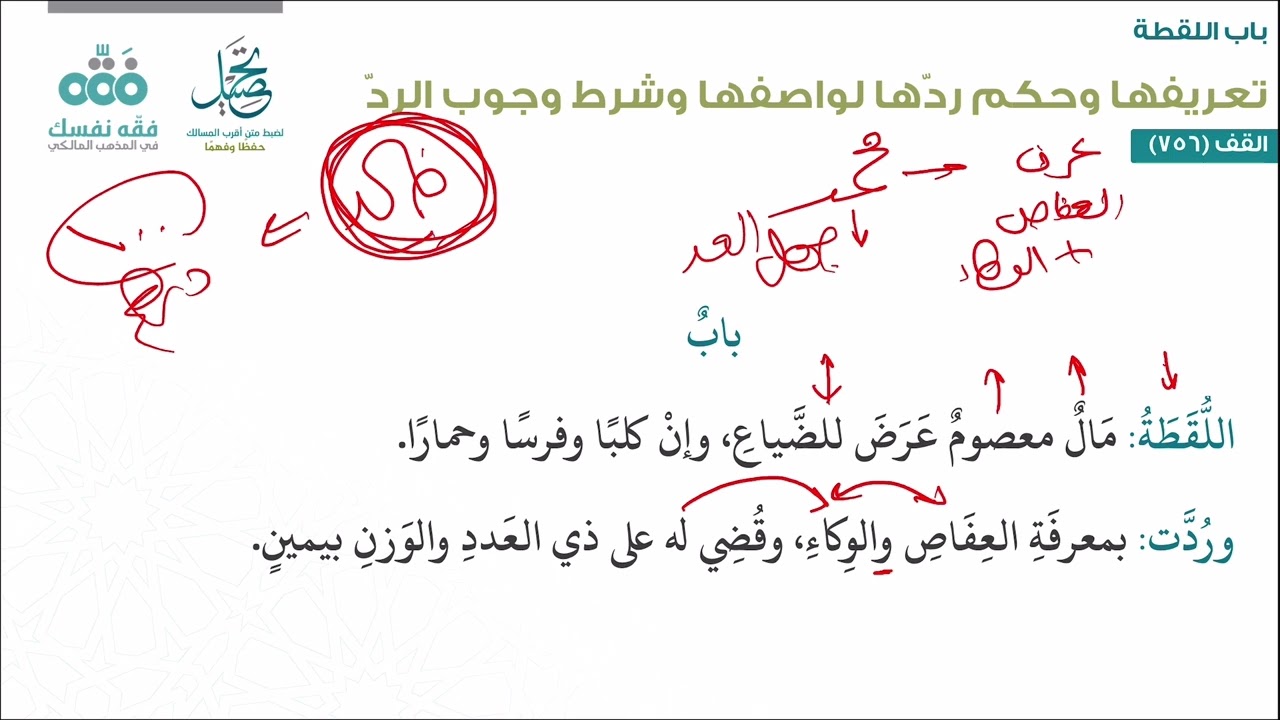 باب اللقطة
تعريفها وحكم ردّها لواصفها وشرط وجوب الردّ
القف (٧٥٦)
تحصيل
لضبط متن أقرب المسالك
حفظا وفهمًا
فقّه
فقّه نفسك
في المذهب المالكي
عرف
العفاص
+ الوكاء
العدد
بابٌ
اللُّقَطَةُ: مَالٌ معصومٌ عَرَضَ للضَّياعِ، وإنْ كلبًا وفرسًا وحمارًا.
ورُدَّت: بمعرفَةِ العِفَاصِ والوِكاءِ، وقُضِي له على ذي العَددِ والوَزنِ بيمينٍ.